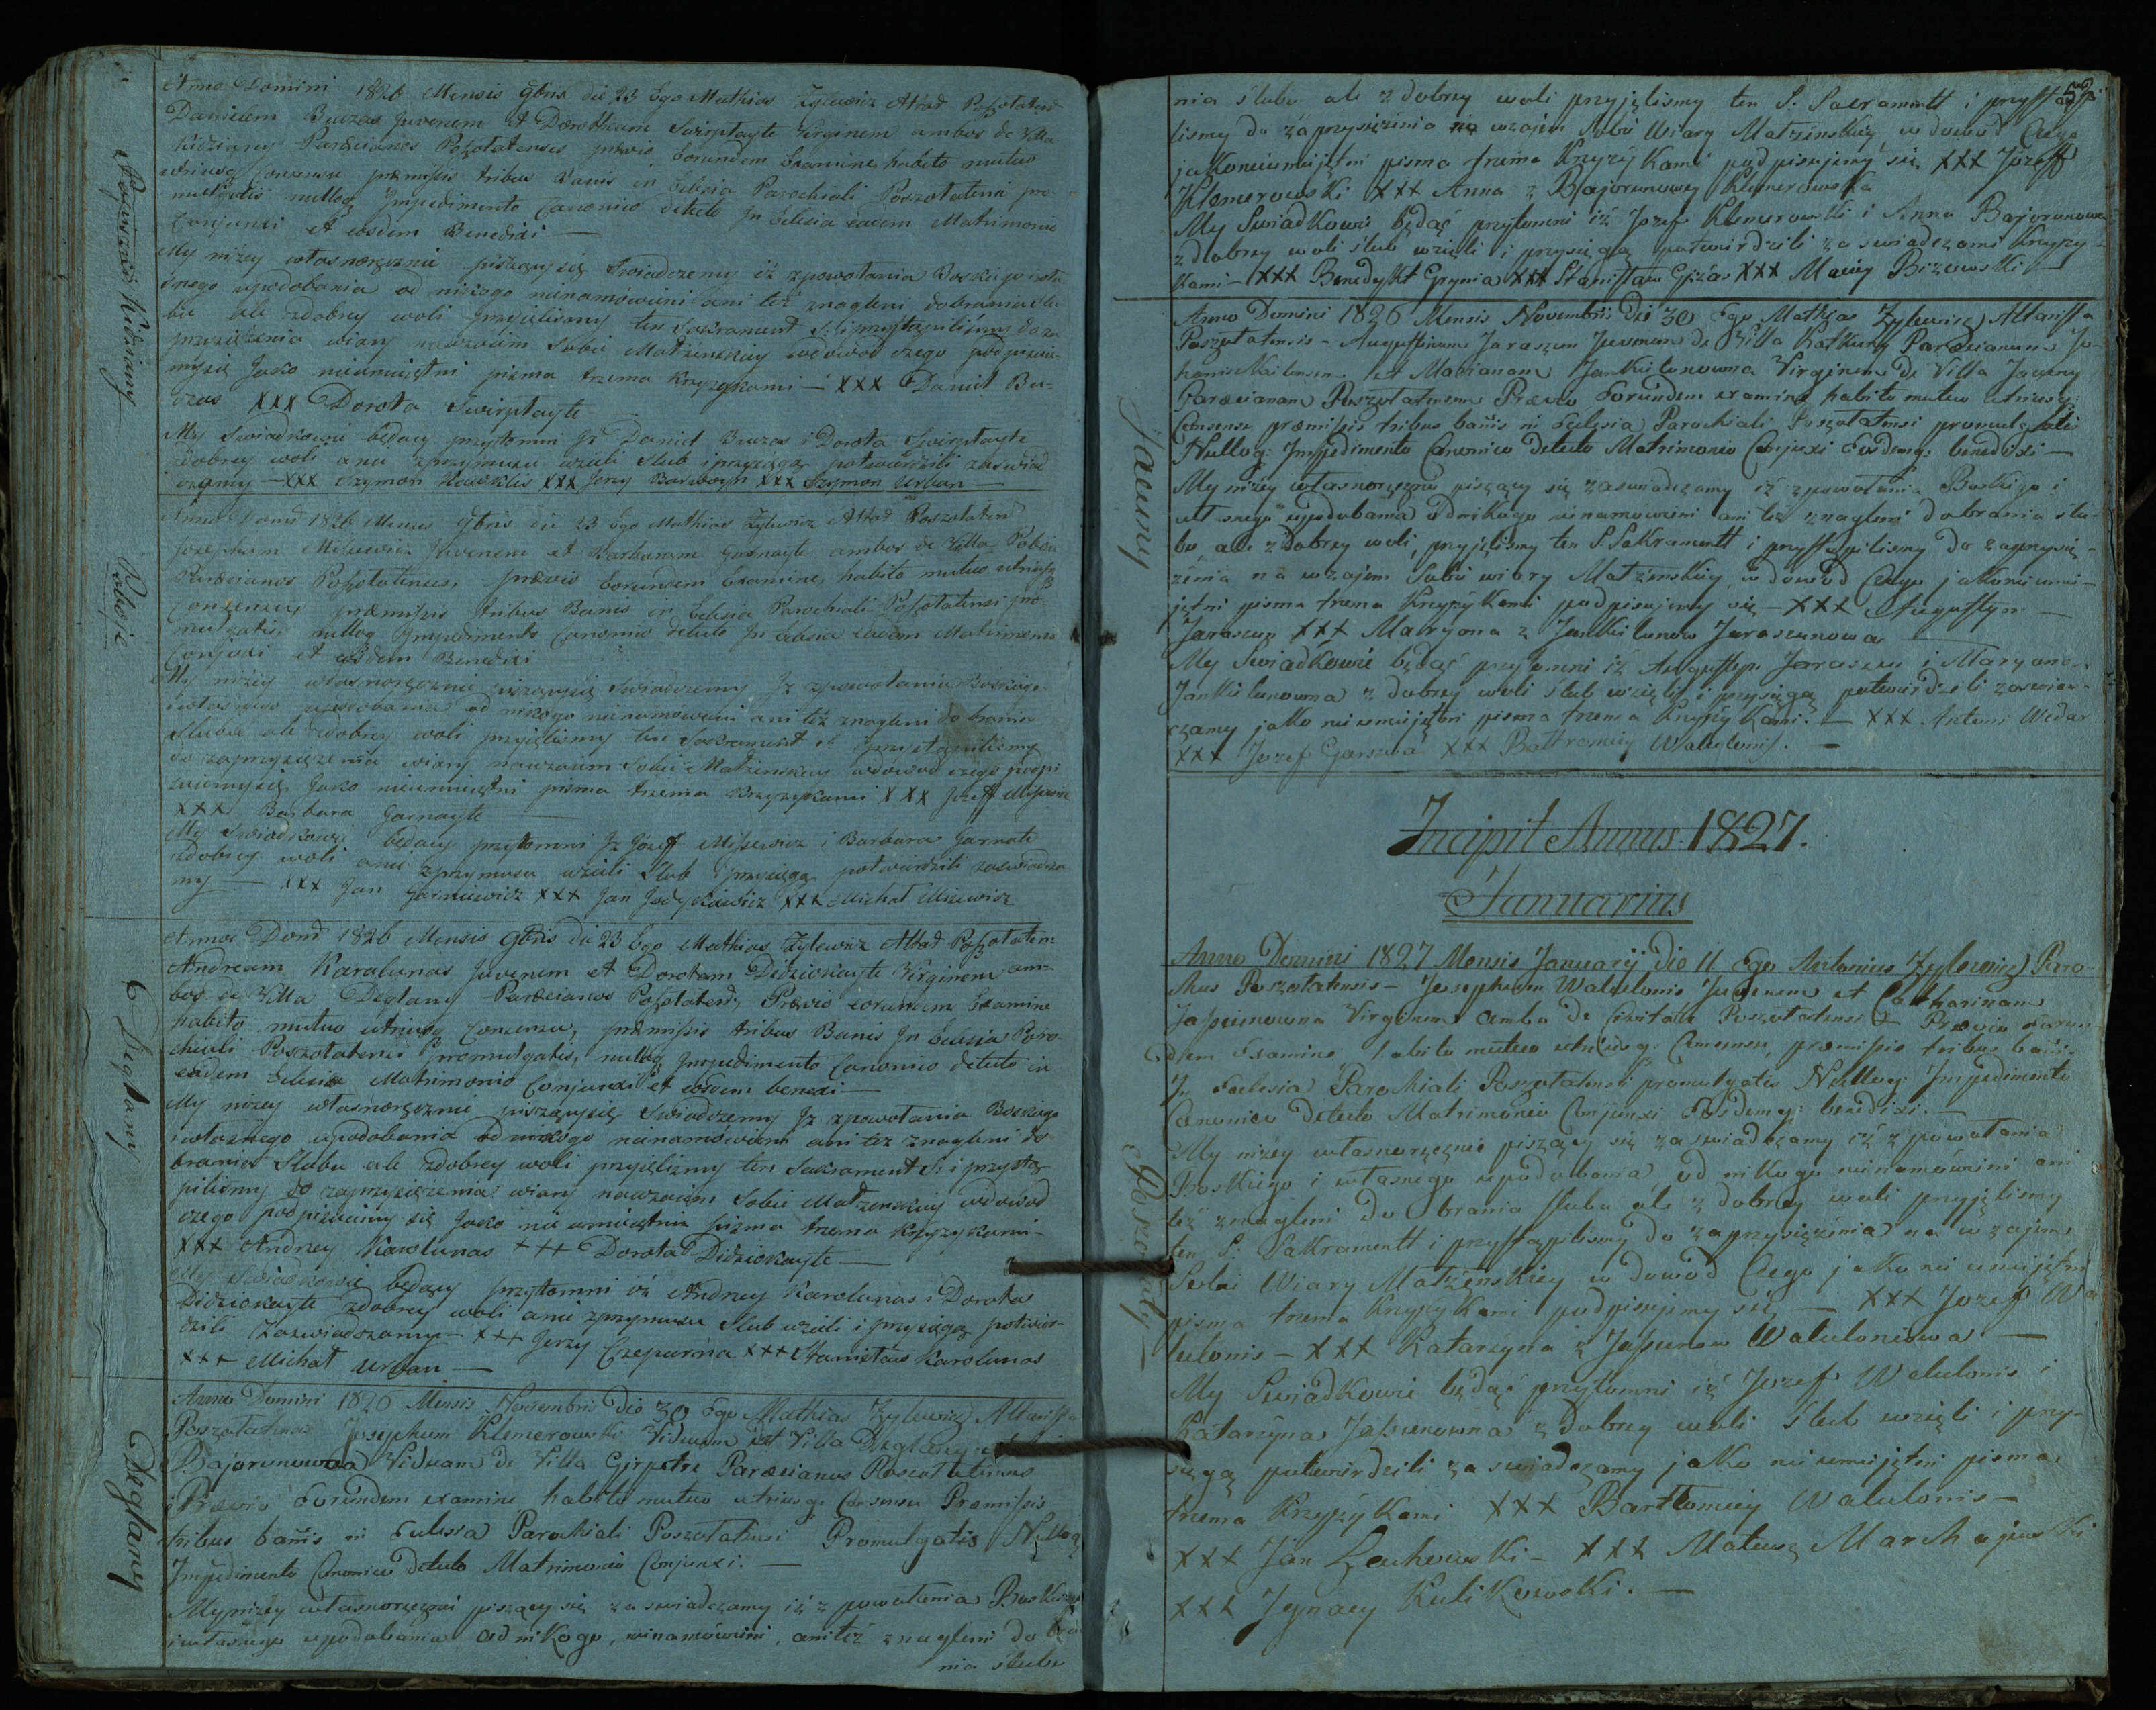 Anno Domini 1826 Mensis 9bris die 23 Ego Mathias Zylewicz Altad Poszolatens
Danielem Buczas Juvenem et Dorotheam Swirplayte Virginem ambos de Villa
Kidziany Paraecianos Poszolatenses praevio Eorundem Examine habito mutuo
utriusq Consensu praemissis tribus Banis in Eclesia Parochiali Poszolatensi pro-
mulgatis nulloq Impedimento Canonico detecto In Eclesia eadem Matrimonio
Conjunxi et eosdem Benedixi —
My niżey własnoręcznie piszącysię Swiadczemy iż zpowołania Boskiego i wła-
snego upodobania od nikogo nienamowieni ani też znagleni dobrania slu-
bu ale zdobrey woli przyieliśmy ten Sakrament S. i przystąpiliśmy do za-
przysiężenia wiary nawzaiem Sobie Małżenskiey wdowod czego podpisuie-
mysię Jako nieumieiętni pisma trzema krzyzykami — XXX Daniel Bu-
czas XXX Dorota Swirplayte —
My Swiadkowie będący przytomni Jż Daniel Buczas i Dorota Swirplayte
zdobrey woli anie zprzymusu wzieli Slub i przysięgą potwierdzili zaswiad
czamy — XXX Szymon XXX Jerzy XXX Szymon Urban
Anno Domi 1826 Mensis 9bris die 23 Ego Mathias Zylewicz Altad Poszolaten
Josephum Misiewicz Juvenem et Barbaram Garnayte ambos de Villa
Paraecianos Poszolatenses, praevio Eorundem Examine, habito mutuo utriusq
Consensu, praemissis tribus Banis in Eclesia Parochiali Poszolatensi pro-
mulgatis, nulloq Impedimento Canonico detecto In Eclesia eadem Matrimonio
Conjunxi et eosdem Benedixi
My niżey własnoręcznie piszącysię Swiadczemy Jż zpowołania Boskiego
i własnego upodobania od nikogo nienamowieni ani też znagleni do brania
Slubu ale zdobrey woli przyieliśmy ten Sakrament S. i przystąpiliśmy
do zaprzysiężenia wiary nawzaiem Sobie Małżenskiey wdowod czego podpi
suiemysię Jako nieumieiętni pisma trzema krzyzykami XXX Jozeff Misiewicz
XXX Barbara Garnayte —
My Swiadkowie będący przytomni Jż Józeff Misiewicz i Barbara Garnate
zdobrey woli anie zprzymusu wzieli Slub i przysięgą potwierdzili zaświadcza
my — XXX Jan Garniewicz XXX Jan XXX Michał Misiewicz
Anno Domi 1826 Mensis 9bris die 23 Ego Mathias Zylewicz Altad Poszolaten:
Andream Karalunas Juvenem et Dorotam Didziokayte Virginem am-
bos de Villa Deglany Paraecianos Poszolatens, Praevio eorundem Examine
habito mutuo utriusq Consensu, praemissis tribus Banis In Eclesia Paro-
chiali Poszolatensi Promulgatis, nulloq Impedimento Canonico detecto in
eadem Eclesia Matrimonio Conjunxi et eosdem benexi —
My niżey własnoręcznie piszącysię Swiadczemy Jż zpowołania Boskiego
i własnego upodobania od nikogo nienamowieni ani też znagleni do-
brania Slubu ale zdobrey woli przyieliśmy ten Sakrament S: i przystą
piliśmy do zaprzysiężenia wiary nawzaiem Sobie Małżenskiey wdowod
czego podpisuiemy się Jako nie umieiętnie pisma trzema krzyzykami —
XXX Andrzey Karolunas XXX Dorota Didziokayte —
My Swiadkowie będący przytomni iż Andrzey Karolunas i Dorota
Didziokayte zdobrey woli anie zprzymusu Slub wzieli i przysięgą potwier-
dzili Zaswiadczamy — XXX Jerzy Czepurna XXX Stanisław Karolunas
XXX Michał Urban —
Anno Domini 1826 Mensis Novembris Die 30 Ego Mathias Zylewicz Altarista
Poszolatensis Josephum Klemerowski Viduum de Villa Deglany
Bajorunowna Viduam De Villa Paraecianos Poszolatenses
Praevio Eorundem examine habito mutuo utriusq: Consensu Praemissis
tribus banis in Eclesia Parochiali Poszolatensi Promulgatis Nulloq
Impedimento Canonico Detecto Matrimonio Conjunxi. —
My niżey własnoręcznie piszący się zaswiadczamy iż z powołania Boskiego
i własnego upodobania od nikogo, nienamówieni, ani też znagleni do bra
nia slubu
Kidziany
Deglany
Deglany
52
nia slubu ale z dobrey woli przyjęlismy ten S: Sacramentt i przystąpi
lismy do zaprzysiężenia na wzajem Sobie Wiary Małżenskiey w dowód Czego
jakonieumiejętni pisma trzema Krzyżykami podpisujemy się XXX Józeff
Klemerowski XXX Anna z Bajorunowey Klemerowska
My Swiadkowie będąc przytomni iż Jozef Klemerowski i Anna Bajorunowna
z dobrey woli slub wzieli i przysięgą potwierdzili zaswiadczamy Krzyży-
kami — XXX Benedykt Grynia XXX Stanisław XXX Maciey Bizewski —
Anno Domini 1826 Mensis Novembris Die 30 Ego Mathias Zylewicz Altarista
Poszolatensis — Augustinum Jaraszun Juvenem de Villa Paraecianum Jo-
haniskielensem et Mariannam Jankielunowna Virginem De Villa Jacuny
Paraecianam Poszolatensem Praevio Eorundem examine habito mutuo utriusq:
Consensu praemissis tribus banis in Eclesia Parochiali Poszolatensi promulgatis
Nulloq: Impedimento Canonico Detecto Matrimonio Conjunxi Eosdemq: benedixi —
My niżey własnoręcznie piszący się zaswiadczamy iż zpowołania Boskiego i
wł snego upodobania odnikogo nienamowieni ani też znagleni dobrania slu-
bu, ale z dobrey woli, przyjęlismy ten S Sakramentt i przystąpilismy do zaprzysię-
żenia na wzajem Sobie wiary Małżenskiey w dowód Czego jakonieumie-
jętni pisma trzema Krzyżykami podpisujemy się — XXX Augustyn —
Jaraszun XXX Maryona z Jankielunow Jaraszunowa
My Swiadkowie będąc przytomni iż Augustyn Jaraszun i Maryana
Jankielunowna z dobrey woli slub wzięli i przysięgą potwierdzili zaswiad-
czamy jako nieumiejętni pisma trzema Krzyżykami. — XXX Antoni Widar
XXX Jozef Garszwa XXX Battromiey Walulonis. —
Incipit Annus: 1827.
Januarius
Anno Domini 1827 Mensis Januarij Die 11 Ego Antonius Zylewicz Paro-
chus Poszolatensis — Josephum Walulonis Juvenem et Catharinam
Jasiunowna Virginem ambo De Civitate Poszolatensi Praevio eorun
dem Examine habito mutuo utriusq: Consensu, praemissis tribus banis
In Eclesia Parochiali Poszolatensi promulgatis Nulloq: Impedimento
Canonico Detecto Matrimonio Conjunxi Eosdemq: benedixi. —
My niżey własnoręcznie piszący się zaswiadczamy iż z powołania
Boskiego i własnego upodobania, od nikogo nienamówieni ani
też znagleni do brania slubu ale z dobrey woli przyjęlismy
ten S: Sakramentt i przystąpilismy do zaprzysiężenia na wzajem
Sobie Wiary Małżenskiey w dowód Czego jako nie umiejętni
pisma trzema Krzyżykami podpisujemy się — XXX Jozef Wa
lulonis — XXX Katarzyna z Jasiunow Waluloniowa —
My Swiadkowie będąc przytomni iż Jozef Walulonis i
Katarzyna Jasiunowna z dobrey woli slub wzięli i przy-
sięgą potwierdzili zaswiadczamy jako nieumiejętni pisma
trzema Krzyżykami XXX Bartłomiey Walulonis —
XXX Jan Lachowski — XXX Mateusz Marchajewski
XXX Jgnacy Kulikowski. —
Jacuny